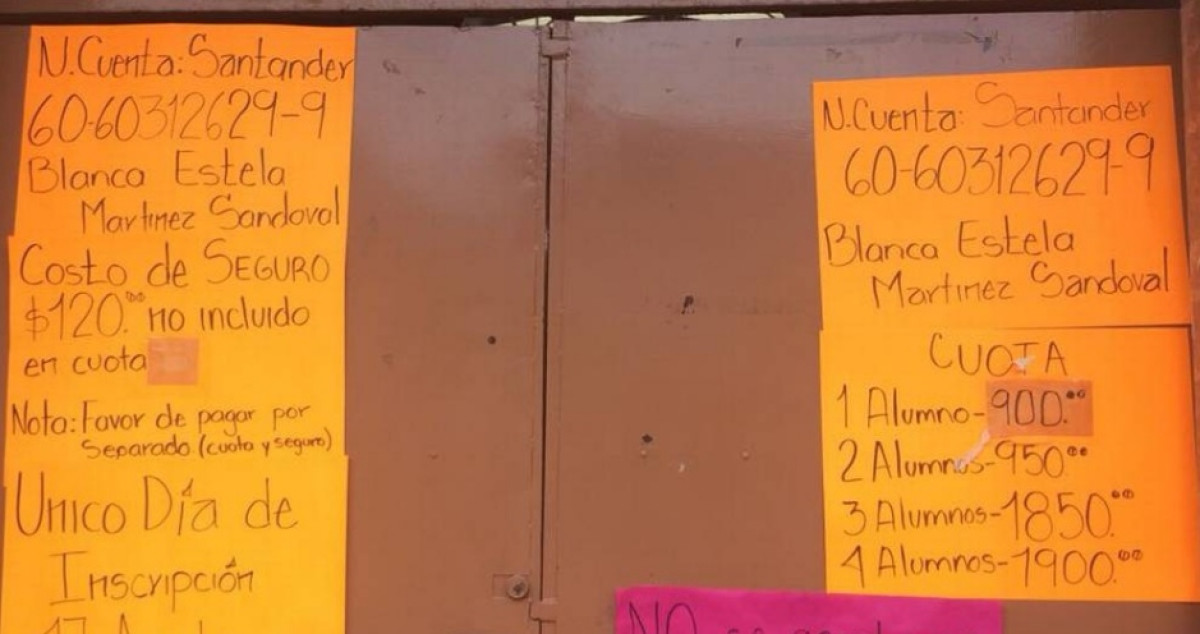 N.Cuenta: Santander
60-60312629-9
Blanca Estela
Martinez Sandoval
Costo de SEGURO
$120.00 no incluido
en cuota
Nota: Favor de pagar por
Separado (cuota y seguro)
Unico Día de
Inscripción
N.Cuenta: Santander
60-60312629-9
Blanca Estela
Martinez Sandoval
CUOTA
1 Alumno-900.00
2 Alumnos-950.00
3 Alumnos-1850.00
4 Alumnos-1900.00
NO